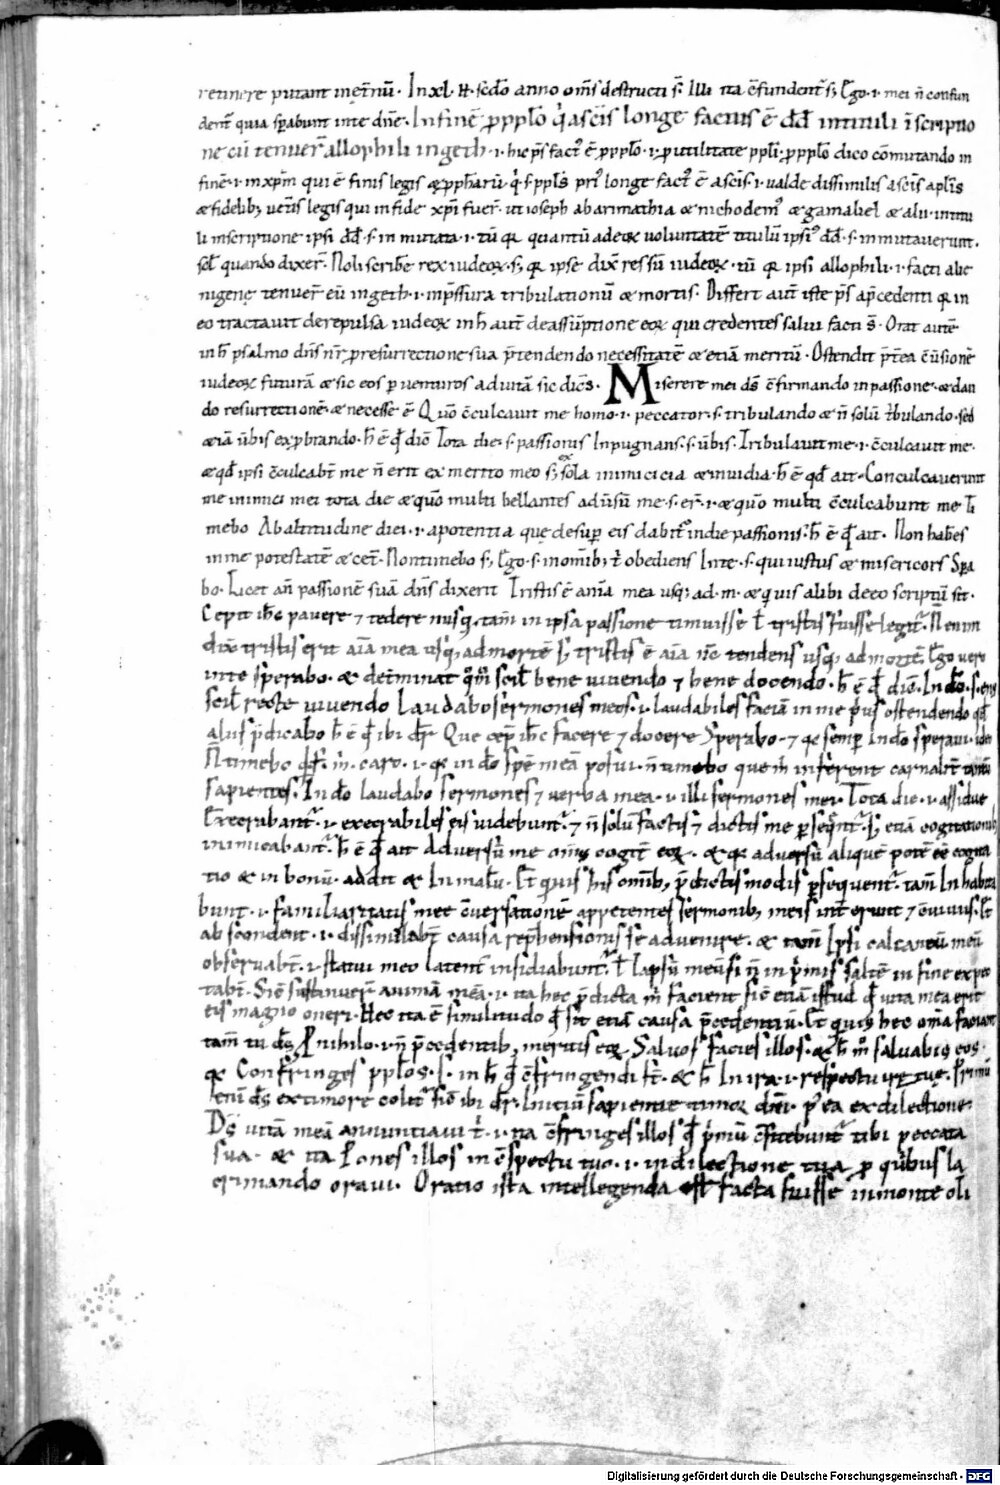 retinere putant inet̄nū. In xl. ii. sc̄do anno om̄s destructi s̄. Illi ita c̄fundent᷒ s; Ego .i. mei n̄ confun
dent̄ quia sp̄abunt in te dn̄e. In finē ꝓ ppl̄o q̇ a sc̄is longe factus ē dd̄ in tituli īscriptio
ne cū tenuer̄ allophili in geth .i. hic ps̄ fact᷒ ē ꝓ ppl̄o .i. ꝓ utilitate ppl̄i. ꝓ ppl̄o dico cōmutando in
finē .i. in xp̄m qui ē finis legis & ꝓph̄arū q̇ .s. ppl̄s pri᷒ longe fact᷒ ē a sc̄is .i. ualde dissimilis a sc̄is apl̄is
& fidelib; uet̄is legis qui in fide xp̄i fuer̄. ut ioseph ab arimathia & nichodem᷒ & gamaliel & alii. in titu
li inscriptione ipsi dd̄ .s. in mutata .i. tū qꝛ quantū ad eoꝝ uoluntatē titulū ipsi᷒ dd̄ .s. inmutauerunt.
scil̄ quando dixer̄. Noli scribe rex iudeoꝝ. s; qꝛ ipse dix̄ rex sū iudeoꝝ. tū qꝛ ipsi allophili .i. facti alie
nigenę tenuer̄ eū in geth .i. in p̄ssura tribulationū & mortis. Differt aut̄ iste ps̄ a p̄cedenti qꝛ in
eo tractauit de repulsa iudeoꝝ in h̄ aut̄ de assūptione eoꝝ qui credentes salui facti s̄. Orat autē
in h̄ psalmo dn̄s nr̄ ꝓ resurrectione sua p̄tendendo necessitatē & etiā meritū. Ostendit p̄t̄ea c̄uīsionē
iudeoꝝ futurā & sic eos ꝑuenturos ad uitā sic dic̄s. Miserere mei ds̄ c̄firmando in passione. & dan
do resurrectionē. & necesse ē Qm̄ c̄culcauit me homo .i. peccator .s. tribulando & n̄ solū t̄bulando. sed
& iā ūbis exp̄brando. h̄ ē qd̄ dic̄ Tota die .s. passionis Inpugnans .s. ūbis. Tribulauit me .i. c̄culcauit me.
& qd̄ ipsi c̄culcabt̄ me n̄ erit ex merito meo s; ex sola inimicicia & inuidia. h̄ ē qd̄ ait. Conculcauerunt
me inimici mei tota die & qm̄ multi bellantes adūsū me .s. er̄ .i. & qm̄ multi c̄culcabunt me. Ti
mebo Ab altitudine diei .i. a potentia quę desuꝑ eis dabit᷒ in die passionis. h̄ ē qd̄ ait. Non hab̄es
in me potestatē & cet̄. Non timebo s; Ego .s. in om̄ib; t̄ obediens In te .s. qui iustus & misericors Spa
bo. Licet an̄ passionē suā dn̄s dixerit Tristis ē anīa mea usq; ad .m. & quis alibi de eo scriptū sit.
Cepit ih̄c pauere & tedere nusq̄ tam̄ in ipsa passione timuisse t̄ tristis fuisse legit᷒. N̄ enim
dix̄ tristis erit aīa mea usq; ad mortē s; tristis ē aīa nc̄ tendens usq; ad mortē. Ego uero
in te sperabo. & det̄minat qm̄ scil̄ bene uiuendo & bene docendo. h̄ ē qd̄ dic̄. In dō .s. ens
scil̄ recte uiuendo Laudabo sermones meos .i. laudabiles faciā in me p̄us ostendendo qd̄
aliis p̄dicabo h̄ ē qd̄ ibi dr̄. Que cep̄ ih̄c facere & docere Sperabo. & qꝛ semp̄ In dō speraui. ideo
N̄ timebo qd̄ f. m̄. caro .i. qꝛ in dō spē meā posui. n̄ timebo que m̄ inferent carnalit̄ tantū
sapientes. In dō laudabo sermones & uerba mea .i. illi sermones mei. Tota die .i. assidue
Execrabant᷒ .i. execrabiles eis uidebunt᷒. & n̄ solū factis & dictis me ꝑseqn̄t᷒. s; etiā cogitationib;
inimicabant᷒. h̄ ē qd̄ ait Aduersū me om̄is cogit̄ eoꝝ. & qꝛ aduersū aliquē potē ēē cogita
tio & in bonū. addit & In malū. Et quis his om̄ib; p̄dictis modis ꝑsequent᷒. tam̄ Inhabita
bunt .i. familiaritatis mee c̄uersationē appetentes sermonib; meis int̄erunt & c̄uiuiis. Et
abscondent .i. dissimilabt̄ causa rep̄hensionis se aduenire. & tam̄ Ipsi calcaneū meū
obseruabt̄ .i. statui meo latent̄ insidiabunt᷒. t̄ lapsū meū si n̄ in p̄mis saltē in fine expec
tabt̄. Sic̄ sustinuer̄ animā meā .i. ita hec p̄dicta m̄ facient sic̄ etiā istud qd̄ uita mea erit
eis magno oneri. Hec ita ē similitudo qd̄ sit etiā causa p̄cedentiū. Et quis hec om̄a faciant
tam̄ tu ds̄ Pnihilo .i. n̄ p̄cedentib; meritis eoꝝ. Saluos facies illos. & h̄ m̄ saluabis eos.
qꝛ Confringes pplos .s. in h̄ qd̄ c̄fringendi st̄. & h̄ In ira .i. respectu irę tuę. Primū
enī ds̄ ex timore colit᷒ sic̄ ibi dr̄. Initiū sapientie timor dn̄i. p᷒ ea ex dilectione
Ds̄ uitā meā annuntiaui t̄ .i. ita c̄fringes illos qd̄ p̄mū c̄fitebunt᷒ tibi peccata
sua. & ita Pones illos in c̄spectu tuo .i. in dilectione tua ꝑ quibus la
crimando oraui. Oratio ista intellegenda est facta fuisse in monte oli
Digitalisierung gefördert durch die Deutsche Forschungsgemeinschaft - DFG